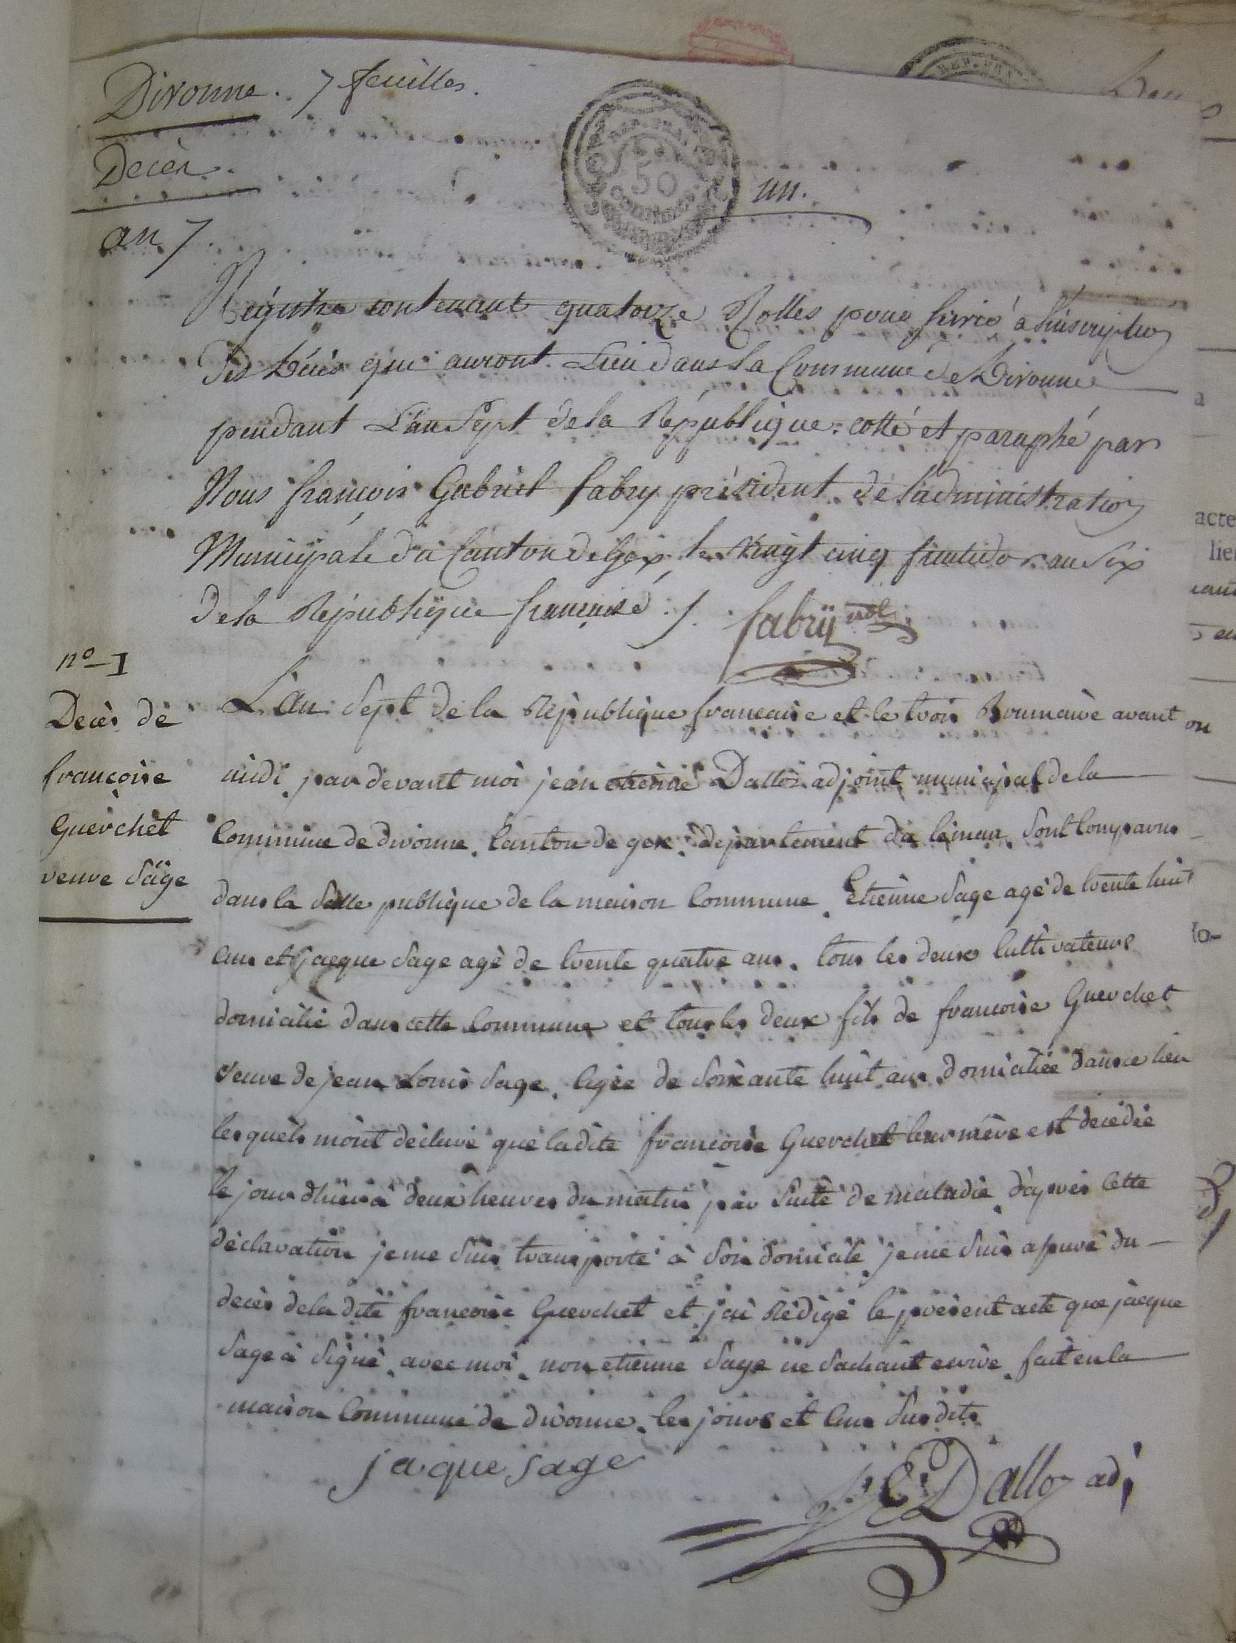 Divonne. 7 feuilles.
Decès.
an 7.
REP. FRA
50
CENTIMES
un.
Registre contenant quatorze Rolles pour servir à l'inscription
des Décès qui auront Lieu dans la Commune de Divonne
pendant L'an Sept de la République. cotté et paraphé par
Nous françois Gabriel fabry président de l'administration
Municipale du Canton de Gex, le Vingt cinq fructidor an Six
de la République française ./.
fabry
n° 1
Decès de
françoise
Guerchet
veuve Sage
L'an Sept de la République francaise et le trois Brumaire avant
midi par devant moi jean etienne Dalloz adjoint municipal de la
Commune de divonne. Canton de gex. département du léman sont Comparus
dans la Salle publique de la maison Commune. Etienne Sage agé de trente huit
ans et jacque Sage agé de trente quatre ans. tous les deux Cultivateurs
domicilié dans cette Commune et tous les deux fils de francoise Guerchet
veuve de jean Louis Sage. Agée de Soixante huit ans domiciliée dans ce lieu
lesquels m'ont déclaré que ladite francoise Guerchet leur mère est decedée
le jour d'hier à deux heures du matin par Suite de maladie d'après Cette
déclaration je me Suis transporté à Son domicile je me Suis assuré du
decès de la dite francoise Guerchet et j'ai Rédigé le présent acte que jacque
Sage à Signé avec moi. non etienne Sage ne Sachant ecrire fait en la
maison Commune de divonne. les jours et ans Susdits
jaque sage
J E Dalloz adj
acte
lie